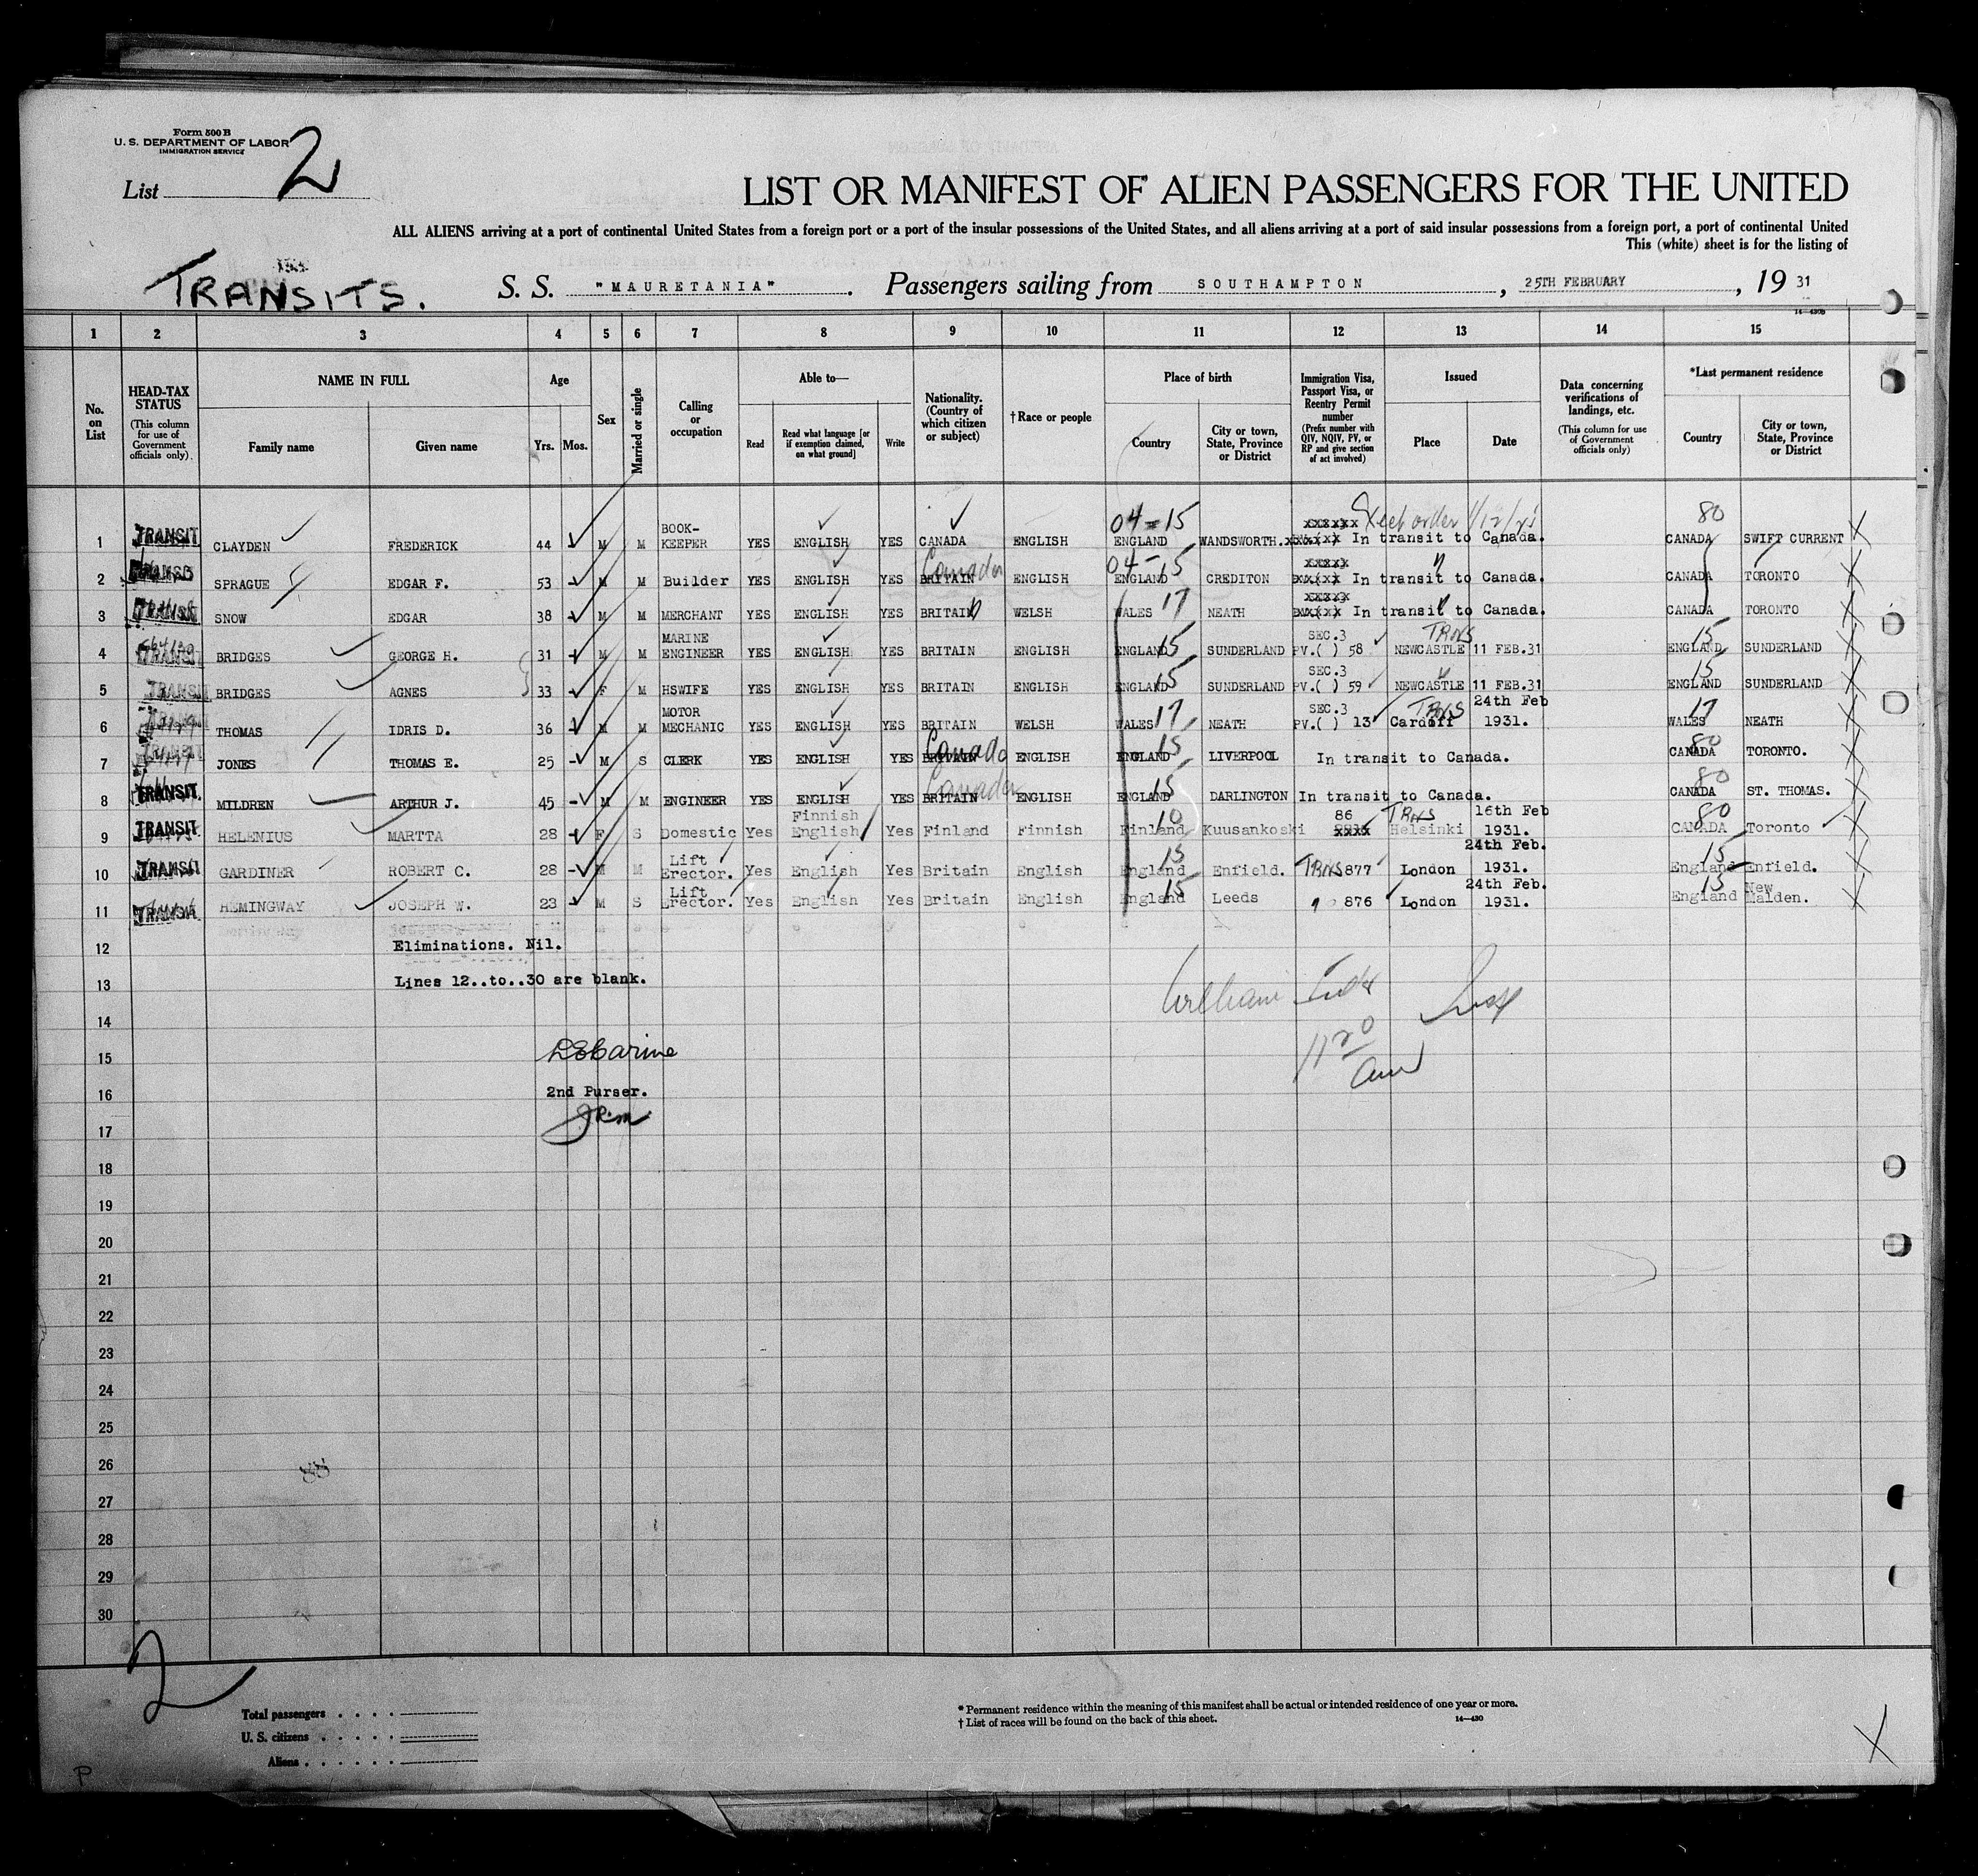 Form 500 B
U. S. DEPARTMENT OF LABOR
IMMIGRATION SERVICE
List 2
LIST OR MANIFEST OF ALIEN PASSENGERS FOR THE UNITED
ALL ALIENS arriving at a port of continental United States from a foreign port or a port of the insular possessions of the United States, and all aliens arriving at a port of said insular possessions from a foreign port, a port of continental United
This (white) sheet is for the listing of
TRANSITS. S. S. "MAURETANIA". Passengers sailing from SOUTHAMPTON, 25TH FEBRUARY, 19 31
14-430B
1 2 3 4 5 6 7 8 9 10 11 12 13 14 15
No. on List
HEAD-TAX STATUS (This column for use of Government officials only).
NAME IN FULL
Family name Given name
Age
Yrs. Mos.
Sex
Married or single
Calling or occupation
Able to—
Read Read what language [or if exemption claimed, on what ground] Write
Nationality. (Country of which citizen or subject)
† Race or people
Place of birth
Country City or town, State, Province or District
Immigration Visa, Passport Visa, or Reentry Permit number (Prefix number with QIV, NQIV, PV, or RP and give section of act involved)
Issued
Place Date
Data concerning verifications of landings, etc. (This column for use of Government officials only)
*Last permanent residence
Country City or town, State, Province or District
1 TRANSIT CLAYDEN FREDERICK 44 M M BOOK-KEEPER YES ENGLISH YES CANADA ENGLISH 04-15 ENGLAND WANDSWORTH. In transit to Canada. 80 CANADA SWIFT CURRENT
2 TRANSIT SPRAGUE EDGAR F. 53 M M Builder YES ENGLISH YES BRITAIN Canada ENGLISH 04-15 ENGLAND CREDITON In transit to Canada. CANADA TORONTO
3 TRANSIT SNOW EDGAR 38 M M MERCHANT YES ENGLISH YES BRITAIN WELSH WALES 17 NEATH In transit to Canada. CANADA TORONTO
4 TRANSIT BRIDGES GEORGE H. 31 M M MARINE ENGINEER YES ENGLISH YES BRITAIN ENGLISH ENGLAND 15 SUNDERLAND SEC.3 PV.( ) 58 TRNS NEWCASTLE 11 FEB.31 15 ENGLAND SUNDERLAND
5 TRANSIT BRIDGES AGNES 33 F M HSWIFE YES ENGLISH YES BRITAIN ENGLISH ENGLAND 15 SUNDERLAND SEC.3 PV.( ) 59 " NEWCASTLE 11 FEB.31 15 ENGLAND SUNDERLAND
6 THOMAS IDRIS D. 36 M M MOTOR MECHANIC YES ENGLISH YES BRITAIN WELSH WALES 17 NEATH SEC.3 PV.( ) 13 TRNS Cardiff 24th Feb 1931. 17 WALES NEATH
7 TRANSIT JONES THOMAS E. 25 M S CLERK YES ENGLISH YES BRITAIN Canada ENGLISH ENGLAND 15 LIVERPOOL In transit to Canada. 80 CANADA TORONTO.
8 TRANSIT MILDREN ARTHUR J. 45 M M ENGINEER YES ENGLISH YES BRITAIN Canada ENGLISH ENGLAND 15 DARLINGTON In transit to Canada. 80 CANADA ST. THOMAS.
9 TRANSIT HELENIUS MARTTA 28 F S Domestic Yes Finnish English Yes Finland Finnish Finland 10 Kuusankoski 86 TRNS Helsinki 16th Feb 1931. 80 CANADA Toronto
10 TRANSIT GARDINER ROBERT C. 28 M M Lift Erector. Yes English Yes Britain English England 15 Enfield. TRNS 877 London 24th Feb. 1931. 15 England Enfield.
11 TRANSIT HEMINGWAY JOSEPH W. 23 M S Lift Erector. Yes English Yes Britain English England 15 Leeds 876 London 24th Feb. 1931. 15 England New Malden.
12 Eliminations. Nil.
13 Lines 12..to..30 are blank.
William
14
1120
15
am
16 2nd Purser.
17
18
19
20
21
22
23
24
25
26
27
28
29
30
2
Total passengers
U. S. citizens
Aliens
* Permanent residence within the meaning of this manifest shall be actual or intended residence of one year or more.
† List of races will be found on the back of this sheet.
14-430
P